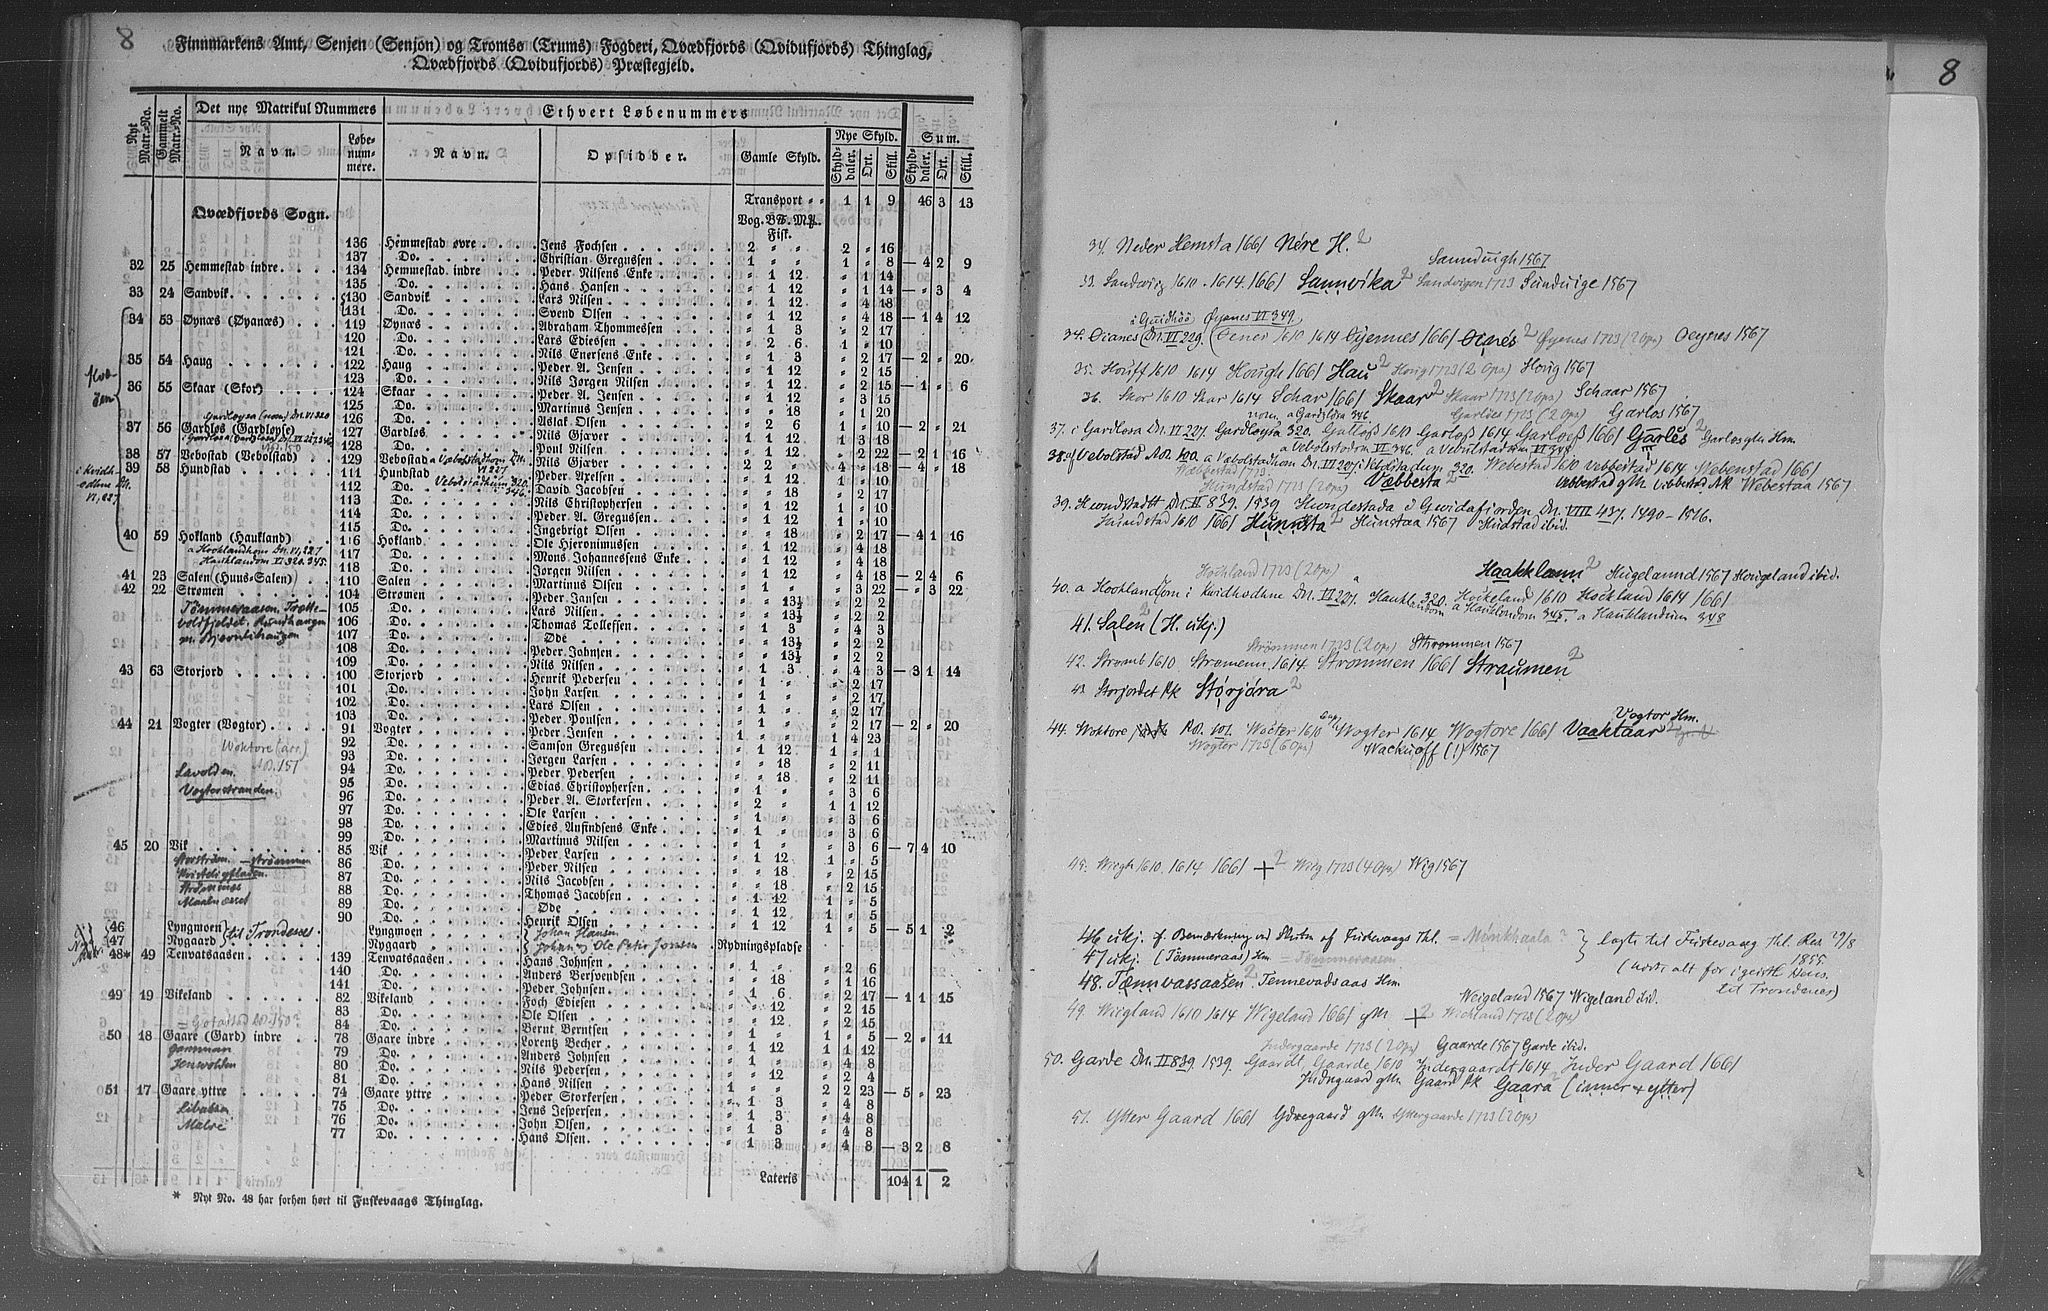 8
Finnmarkens Amt, Senjen (Senjon) og Tromsø (Trums) Fogderi, Qvædfjords (Qvidufjords) Thinglag,
Qvædfjords (Qvidufjords) Præstegjeld.
Nyt Matr.-No. Gammelt Matr.-No. Det nye Matrikul Nummers Ethvert Løbenummers
Navn. Løbenummere. Navn. Opsidder. Gamle Skyld. Nye Skyld. Sum.
Skylddaler. Ort. Skill. Skylddaler. Ort. Skill.
Qvædfjords Sogn. Transport " " 1 1 9 46 3 13
Vog. B℔. Mk.
Fisk.
136 Hemmestad øvre Jens Fochsen 2 " " 2 " 16
137 Do. Christian Gregussen 1 " " 1 " 8 — 4 2 9
32 25 Hemmestad indre 134 Hemmestad indre Peder Nilsens Enke " 1 12 " 1 14
135 Do. Hans Hansen " 1 12 " 1 14 — " 3 4
33 24 Sandvik 130 Sandvik Lars Nilsen " 1 12 " 4 18
131 Do. Svend Olsen " 1 12 " 4 18 — 1 4 12
34 53 Øynæs (Øyanæs) 119 Øynæs Abraham Thommesen " 1 3 " 2 17
120 Do. Lars Ediesen " 2 6 1 " 10
121 Do. Nils Enersens Enke " 1 3 " 2 17 — 2 " 20
35 54 Haug 122 Haug Peder A. Jensen " 1 12 " 2 15
123 Do. Nils Jørgen Nilsen " 1 12 " 2 15 — 1 " 6
36 55 Skaar (Skor) 124 Skaar Peder A. Jensen " 1 12 " 3 15
125 Do. Martinus Jensen " " 18 " 1 20
126 Do. Aslak Olsen " 2 6 1 " 10 — 2 " 21
37 56 Gardløs (Gardloyse) 127 Gardløs Nils Gjæver " 1 12 1 3 18
128 Do. Poul Nilsen " 1 12 " 2 22 — 2 1 16
38 57 Vebostad (Vebolstad) 129 Vebostad Nils Gjæver 2 2 " 4 " 18 — 4 " 18
39 58 Hundstad 111 Hundstad Peder Axelsen " 1 " 1 " 10
112 Do. David Jacobsen " " 18 " 2 17
113 Do. Nils Christophersen " 1 " 1 " 10
114 Do. Peder A. Gregussen " 1 " 1 " 10
115 Do. Ingebrigt Olsen " " 18 " 2 17 — 4 1 16
40 59 Hokland (Haukland) 116 Hokland Ole Hjeronimussen " 1 12 " 4 18
117 Do. Mons Johannessens Enke " 1 12 " 4 18
118 Do. Jørgen Nilsen " 1 12 " 4 18 — 2 4 6
41 23 Salen (Huus-Salen) 110 Salen Martinus Olsen " 1 " " 3 22 — " 3 22
42 22 Strømen 104 Strømen Peder Jansen " " 13½ " 2 2
105 Do. Lars Nilsen " " 13½ " 2 2
106 Do. Thomas Tollefsen " 1 3 " 4 3
107 Do. Øde " " 13½ " 2 2
108 Do. Peder Jahnsen " " 13½ " 2 2
109 Do. Nils Nilsen " 1 3 " 4 3 — 3 1 14
43 63 Storjord 100 Storjord Henrik Pedersen " 1 " " 2 17
101 Do. John Larsen " 1 " " 2 17
102 Do. Lars Olsen " 1 " " 2 17
103 Do. Peder Poulsen " 1 " " 2 17 — 2 " 20
44 21 Vogter (Vogtor) 91 Vogter Peder Jensen " 1 " 1 4 23
92 Do. Samson Gregussen " 1 12 1 " 1
93 Do. Jørgen Larsen " " 18 " 2 11
94 Do. Peder Pedersen " " 18 " 2 11
95 Do. Edias Christophersen " 1 " " 3 6
96 Do. Peder A. Storkersen " 2 " 1 1 12
97 Do. Ole Larsen " 1 " " 3 6
98 Do. Edies Anfindsens Enke " 1 " " 3 6
99 Do. Martinus Nilsen " 1 " " 3 6 — 7 4 10
45 20 Vik 85 Vik Peder Larsen " 1 12 1 " 5
86 Do. Peder Nilsen " " 18 " 2 15
87 Do. Nils Jacobsen " " 18 " 2 15
88 Do. Thomas Jacobsen " 1 12 1 " 5
89 Do. Øde " 1 12 1 " 5
90 Do. Henrik Olsen " 1 12 1 " 5 — 5 1
46 Lyngmoen Lyngmoen Johan Hansen
47 Nygaard } til Trondenes Nygaard Ole Peter Jonsen Rydningspladse
48* 49 Tenvatsaasen 139 Tenvatsaasen Hans Johnsen " 1 " " 2 6
140 Do. Anders Bersvendsen " " 18 " 1 16
141 Do. Peder Johnsen " 1 6 " 2 17 — 1 1 15
49 19 Vikeland 82 Vikeland Foch Ediesen " " 12 " 2 15
83 Do. Ole Olsen " " 12 " 2 15
84 Do. Bernt Berntsen " 1 " 1 " 5 — 2 " 11
50 18 Gaare (Gard) indre 78 Gaare indre Lorentz Becher " 1 12 1 1 12
79 Do. Anders Johnsen " 1 " " 4 8
80 Do. Nils Pedersen " " 12 " 2 4
81 Do. Hans Nilsen 1 " " 2 2 23 — 5 " 23
51 17 Gaare yttre 74 Gaare yttre Peder Storkersen " 1 3 " 4 8
75 Do. Jens Jespersen " 1 3 " 4 8
76 Do. John Olsen " 1 3 " 4 8
77 Do. Hans Olsen " 1 3 " 4 8 — 3 2 8
Lateris 104 1 2
* Nyt No. 48 har forhen hørt til Fuskevaags Thinglag.
Lavolden
Vogterstranden
8
34. Neder Hemsta 1661 Nére H. 2
Sannduigh 1567
33. Sandwig 1610. 1614. 1661 Sannvika 2 Sandvigen 1723 Sunduige 1567
i Guidhöö Øyenes VI 349.
34. Øianes Dn. VI 229. (Oenes 1610 1614 Øjennes 1661 Øines 2 Øyenes 1723 (2 Ops) Oeynes 1567
35. Houff 1610 1614 Hough 1661 Hau 2 Houg 1723 (2 Ops) Houg 1567
36. Skor 1610 Skar 1614 Schar 1661 Skaar 2 Skaar 1723 (2 Ops) Schaar 1567
Garlies 1723 (2 Ops) Garlos 1567
37. i Gardlosa Dn. VI 227. Gardloysa 320. Gatloß 1610 Garloß 1614 Garloeß 1661 Garlés 2
38. Vebolstad AB. 100. a Vebolstadhom Dn. VI 227. Webestad 1610 Vebbestad 1614 Webenstad 1661
Hundstad 1723 (2 Ops) Væbbesta 2 Webestaa 1567
39. Hwndstadtt Dn. II 839. 1539. Hwndestada i Gwidafiorden Dn. VIII 437. 1490–1516.
Hundstad 1610 1661 Hunnsta 2 Hunstaa 1567 Hudstad ibid.
Hochland 1723 (2 Ops) Haakklann 2 Hugelannd 1567 Hougeland ibid.
40. a Hooklandom i Kvidhedhne Dn. VI 227. Hokeland 1610 Hockland 1614 1661
a Hauklondom 345. a Hauklandum 348
41. Salen (H. ukj.) 2
Strømmen 1723 (2 Ops) Strommen 1567
42. Stromb 1610 Stromenn 1614 Strommen 1661 Straumen 2
43. Storjordet Pk Stórjóra 2
Vogtor Hm.
44. Woktore AB. 101. Wacter 1610 Wogter 1614 Wogtore 1661 Vaaktaar 2
Wogter 1723 (6 Ops) Wackuoff (!) 1567
45. Wiigh 1610 1614 1661 + 2 Wiig 1723 (4 Ops) Wig 1567
46 ukj. cf. Bemærkning ved Slutn. af Fuskevaags Thl. = Mónkhaala? } lagte til Fuskevaag Thl. Res 29/8
47 ukj. (Tømmeraas) Hm. = Tømmeraasen 1855
48. Tænnvassaasen 2 Tennevadsaas Hm. til Trondenes)
Weigeland 1567 Wigeland ibid.
49. Wiegland 1610 1614 Wigeland 1661 gM + 2 Wichland 1723 (2 Ops)
Indergaarde 1723 (2 Ops) Gaarde 1567 Garde ibid.
50. Garde Dn. II 839. 1539. Gaardt, Gaarde 1610 Indergaardt 1614 Inder Gaard 1661
Indregaard gM. Gaard Pk Gaara 2 (inner + ytter)
51. Ytter Gaard 1661 Ydregaard gM. Yttergaarde 1723 (2 Ops)